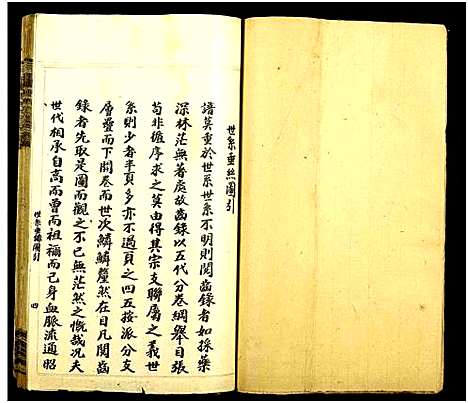 世系垂絲圖引
譜莫重於世系世系不明則閱齒錄者如採藥
深林茫無著處故齒錄以五代分卷綱舉目張
苟非循序求之莫由得其宗支聯屬之義世
系則少者半頁多亦不過頁之四五按派分支
層疊而下開卷而世次鱗鱗釐然在目凡閱齒
錄者先取是圖而觀之不已無茫然之慨哉况夫
世代相承自高而曾而祖禰而己身血脈流通昭
世系垂絲圖引
四